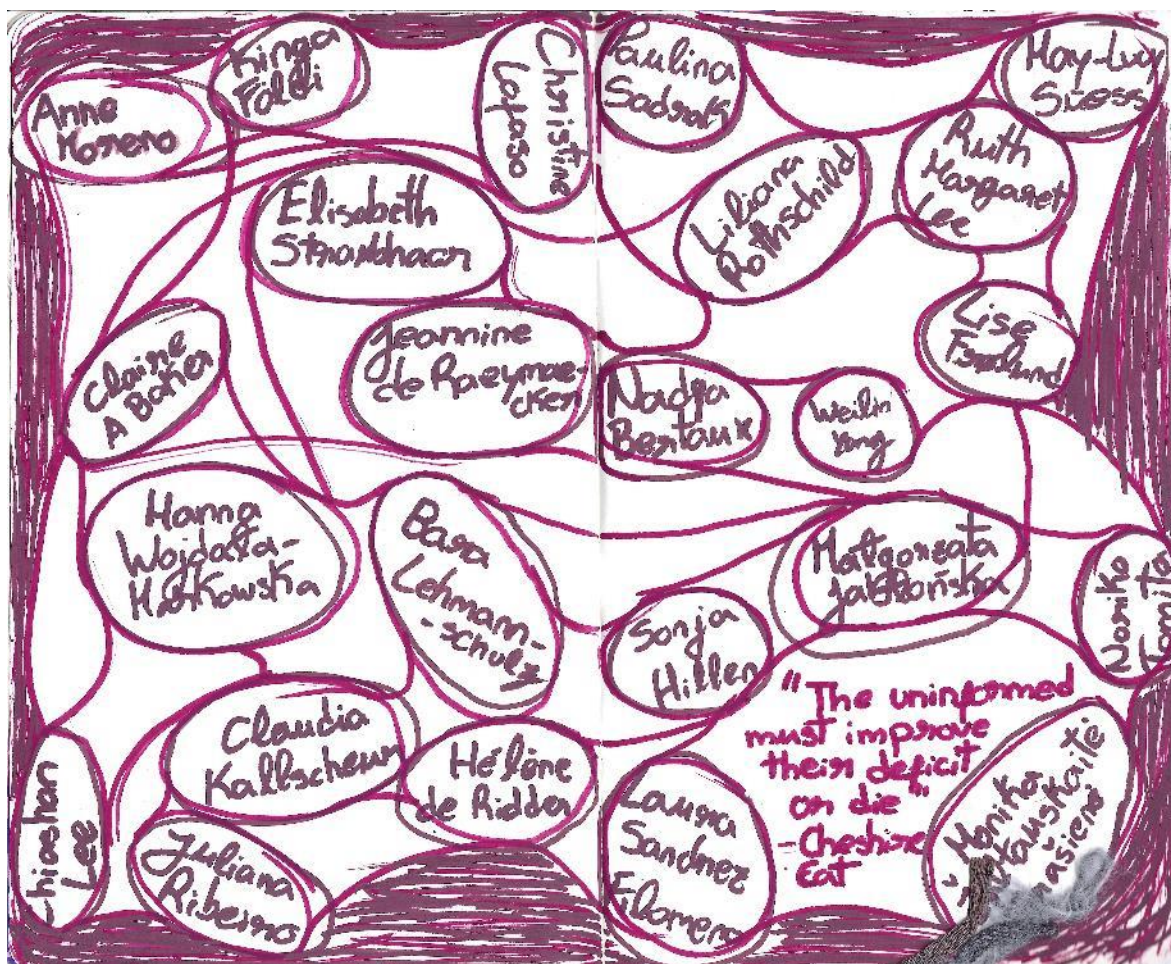 Anne
Moreno
Kinga
Földi
Christine
Paulina
Sadrak
May-Lucy
Süess
Ruth
Margaret
Lee
Liliana
Rothschild
Elisabeth
Straubhaar
Lise
Claire
A Baker
Jeannine
de Raeymae-
cker
Nadja
Bertaux
Weilin
Hanna
Wojdała-
Markowska
Bara
Lehmann-
-schulz
Małgorzata
Jabłońska
Noriko
Sonja
Hillen
"The uninformed
must improve
their deficit
or die"
-Cheshire
Cat
Claudia
Kallscheur
Hélène
de Ridder
Laura
Sandnez
Filomeno
Monika
Lee
Juliana
Ribeiro